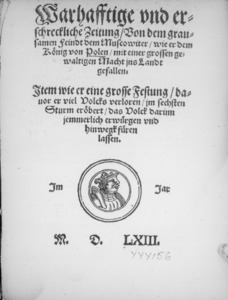 Warhafftige vnd er-
schreckliche Zeitung / Von dem grau-
samen Feindt dem Muscowiter / wie er dem
König von Polen / mit einer grossen ge-
waltigen Macht jns Landt
gefallen.
Item wie er eine grosse Festung / da-
uor er viel Volcks verloren / jm sechsten
Sturm eröbert / das Volck darum
jemmerlich erwürgen vnd
hinwegk füren
lassen.
Im Jar
M. D. LXIII.